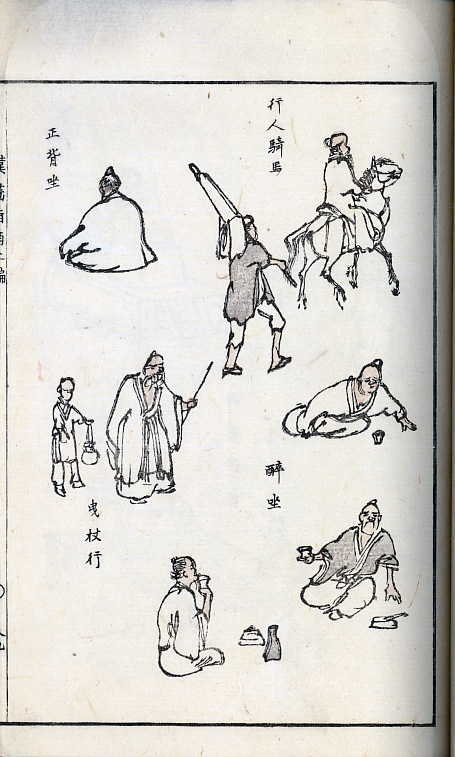 行人騎馬
正背坐
醉坐
曳杖行